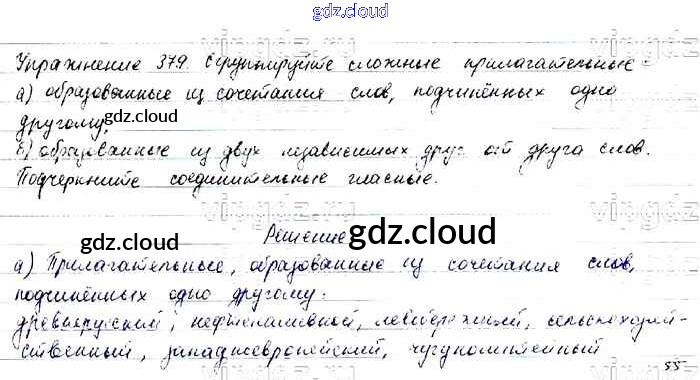 gdz.cloud
Упражнение 379. Сгруппируйте сложные прилагательные:
а) образованные из сочетания слов, подчинённых одно
другому;
gdz.cloud
б) образованные из двух независимых друг от друга слов.
Подчеркните соединительные гласные.
vipgdz
gdz.cloud
Решение
gdz.cloud
а) Прилагательные, образованные из сочетания слов,
подчинённых одно другому:
древнерусский, нефтеналивной, левобережный, сельскохозяй-
ственный, западноевропейский, чугунолитейный
55